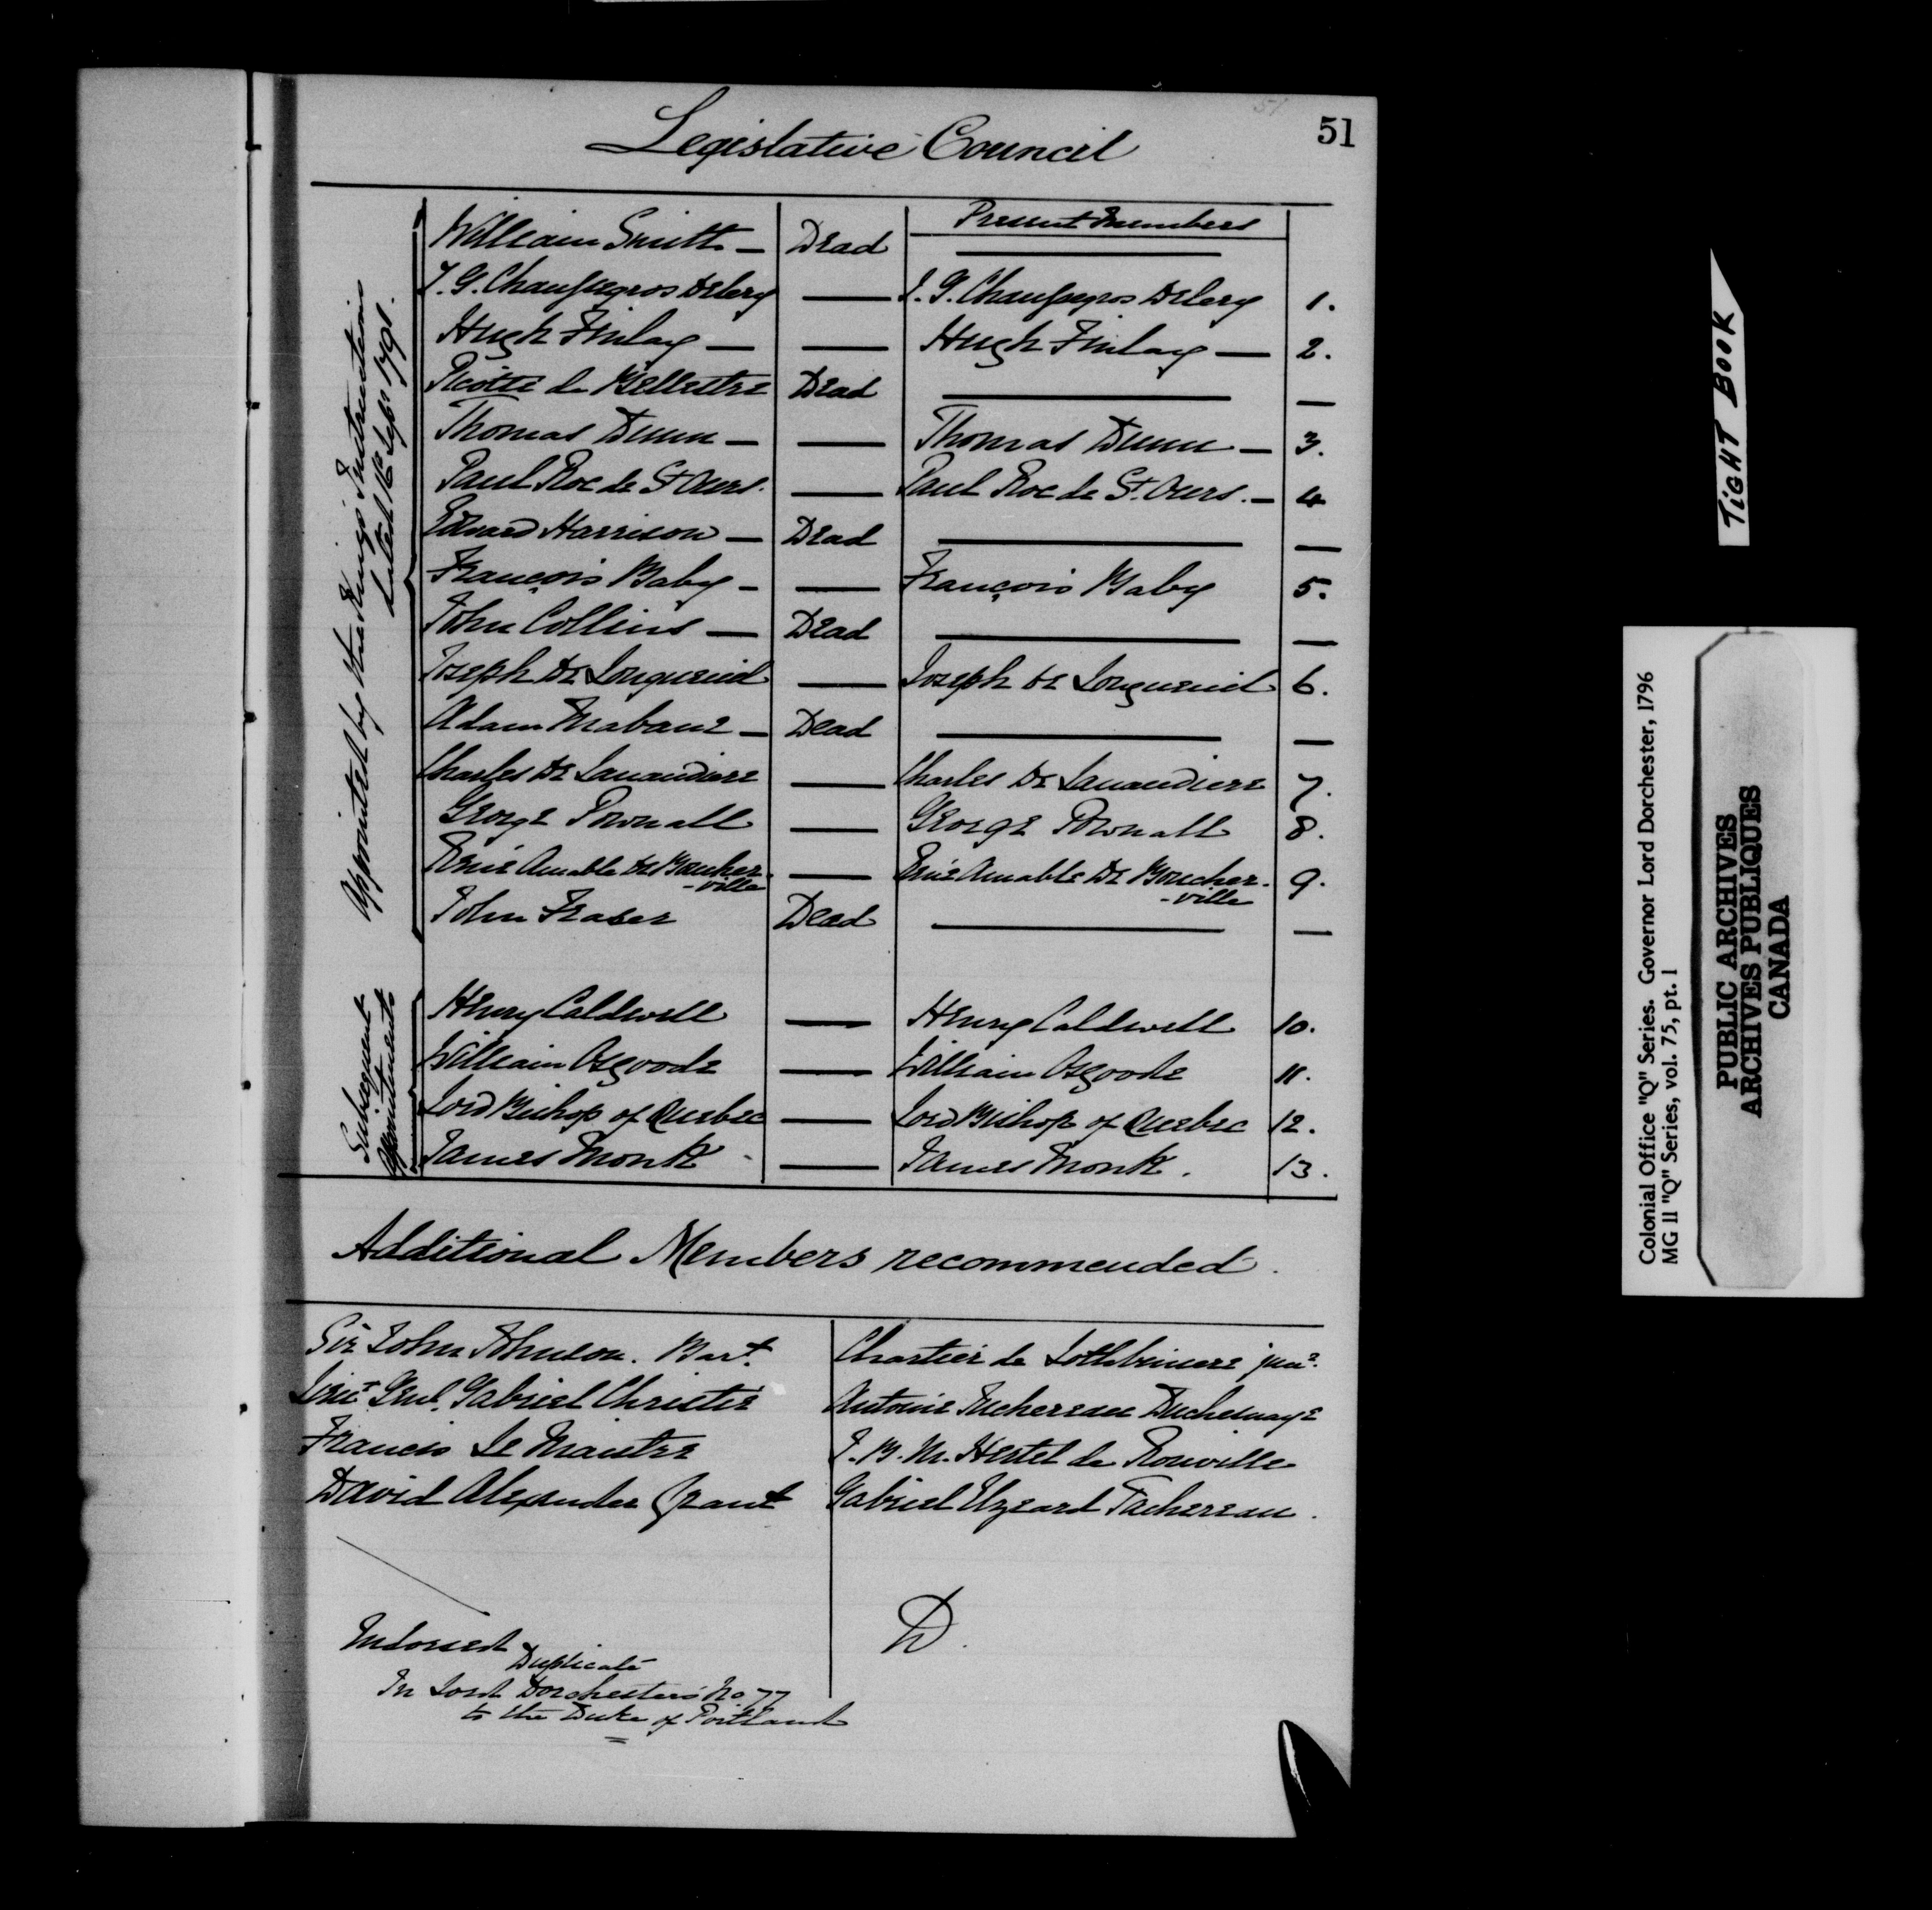 51
51
Legislative Council
Present Members
Appointed by the Kings Instructions
dated 16th Sepr 1791.
William Smith — Dead —
J. G. Chaussegros Delery — J. G. Chaussegros Delery 1.
Hugh Finlay — — Hugh Finlay — 2.
Picotte de Bellestre Dead — —
Thomas Dunn — — Thomas Dunn — 3.
Paul Roc de St Ours. — Paul Roc de St. Ours. — 4
Edward Harrison — Dead — —
François Baby — — François Baby 5.
John Collins — Dead — —
Joseph De Longueuil — Joseph De Longueuil 6.
Adam Mabane — Dead — —
Charles De Lanaudiere — Charles De Lanaudiere 7.
George Pownall — George Pownall 8.
René Amable De Boucher- — René Amable De Boucher- 9.
-ville -ville
John Fraser Dead — —
Subsequent
Appointments
Henry Caldwell — Henry Caldwell 10.
William Osgoode — William Osgoode 11.
Lord Bishop of Quebec — Lord Bishop of Quebec 12.
James Monk — James Monk. 13.
Additional Members recommended.
Sir John Johnson. Bart. Chartier de Lothbiniere junr.
Lieut Genl. Gabriel Christie Antoine Juchereau Duchesnaye
Francis Le Maistre J. B. M. Hertel de Rouville
David Alexander Grant Gabriel Elzeard Tachereau.
D.
Indorsed
Duplicate
In Lord Dorchester's No. 77
to the Duke of Portland
TiGHT BOOK
Colonial Office "Q" Series. Governor Lord Dorchester, 1796
MG 11 "Q" Series, vol. 75, pt. 1
PUBLIC ARCHIVES
ARCHIVES PUBLIQUES
CANADA